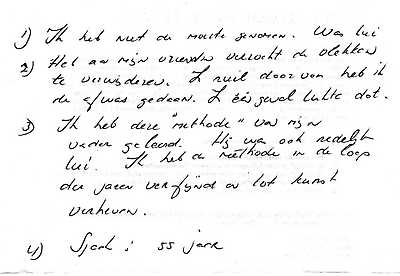 1) Ik heb niet de moeite genomen. Was lui
2) Het aan mijn vriendin verzocht de vlekken
te verwijderen. In ruil daarvoor heb ik
de afwas gedaan. In één geval lukte dat.
3) Ik heb deze "methode" van mijn
vader geleerd. Hij was ook redelijk
lui. Ik heb de methode in de loop
der jaren verfijnd en tot kunst
verheven.
4) Sjack : 55 jaar